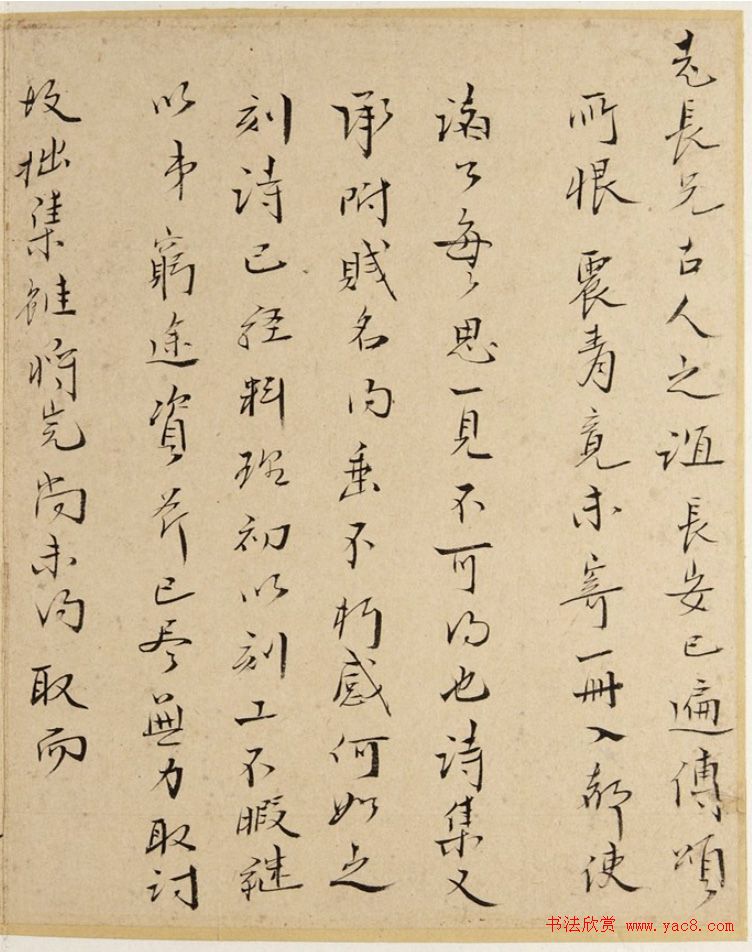 老長兄古人之誼長安已遍傳頌
所恨震青竟未寄一冊入都使
滿公每每思一見不可得也詩集又
承附賤名得垂不朽感何如之
刻詩已經料理初以刻工不暇繼
以弟窮途資斧已尽無力取討
故拙集雖將完尚未得取而
书法欣赏 www.yac8.com